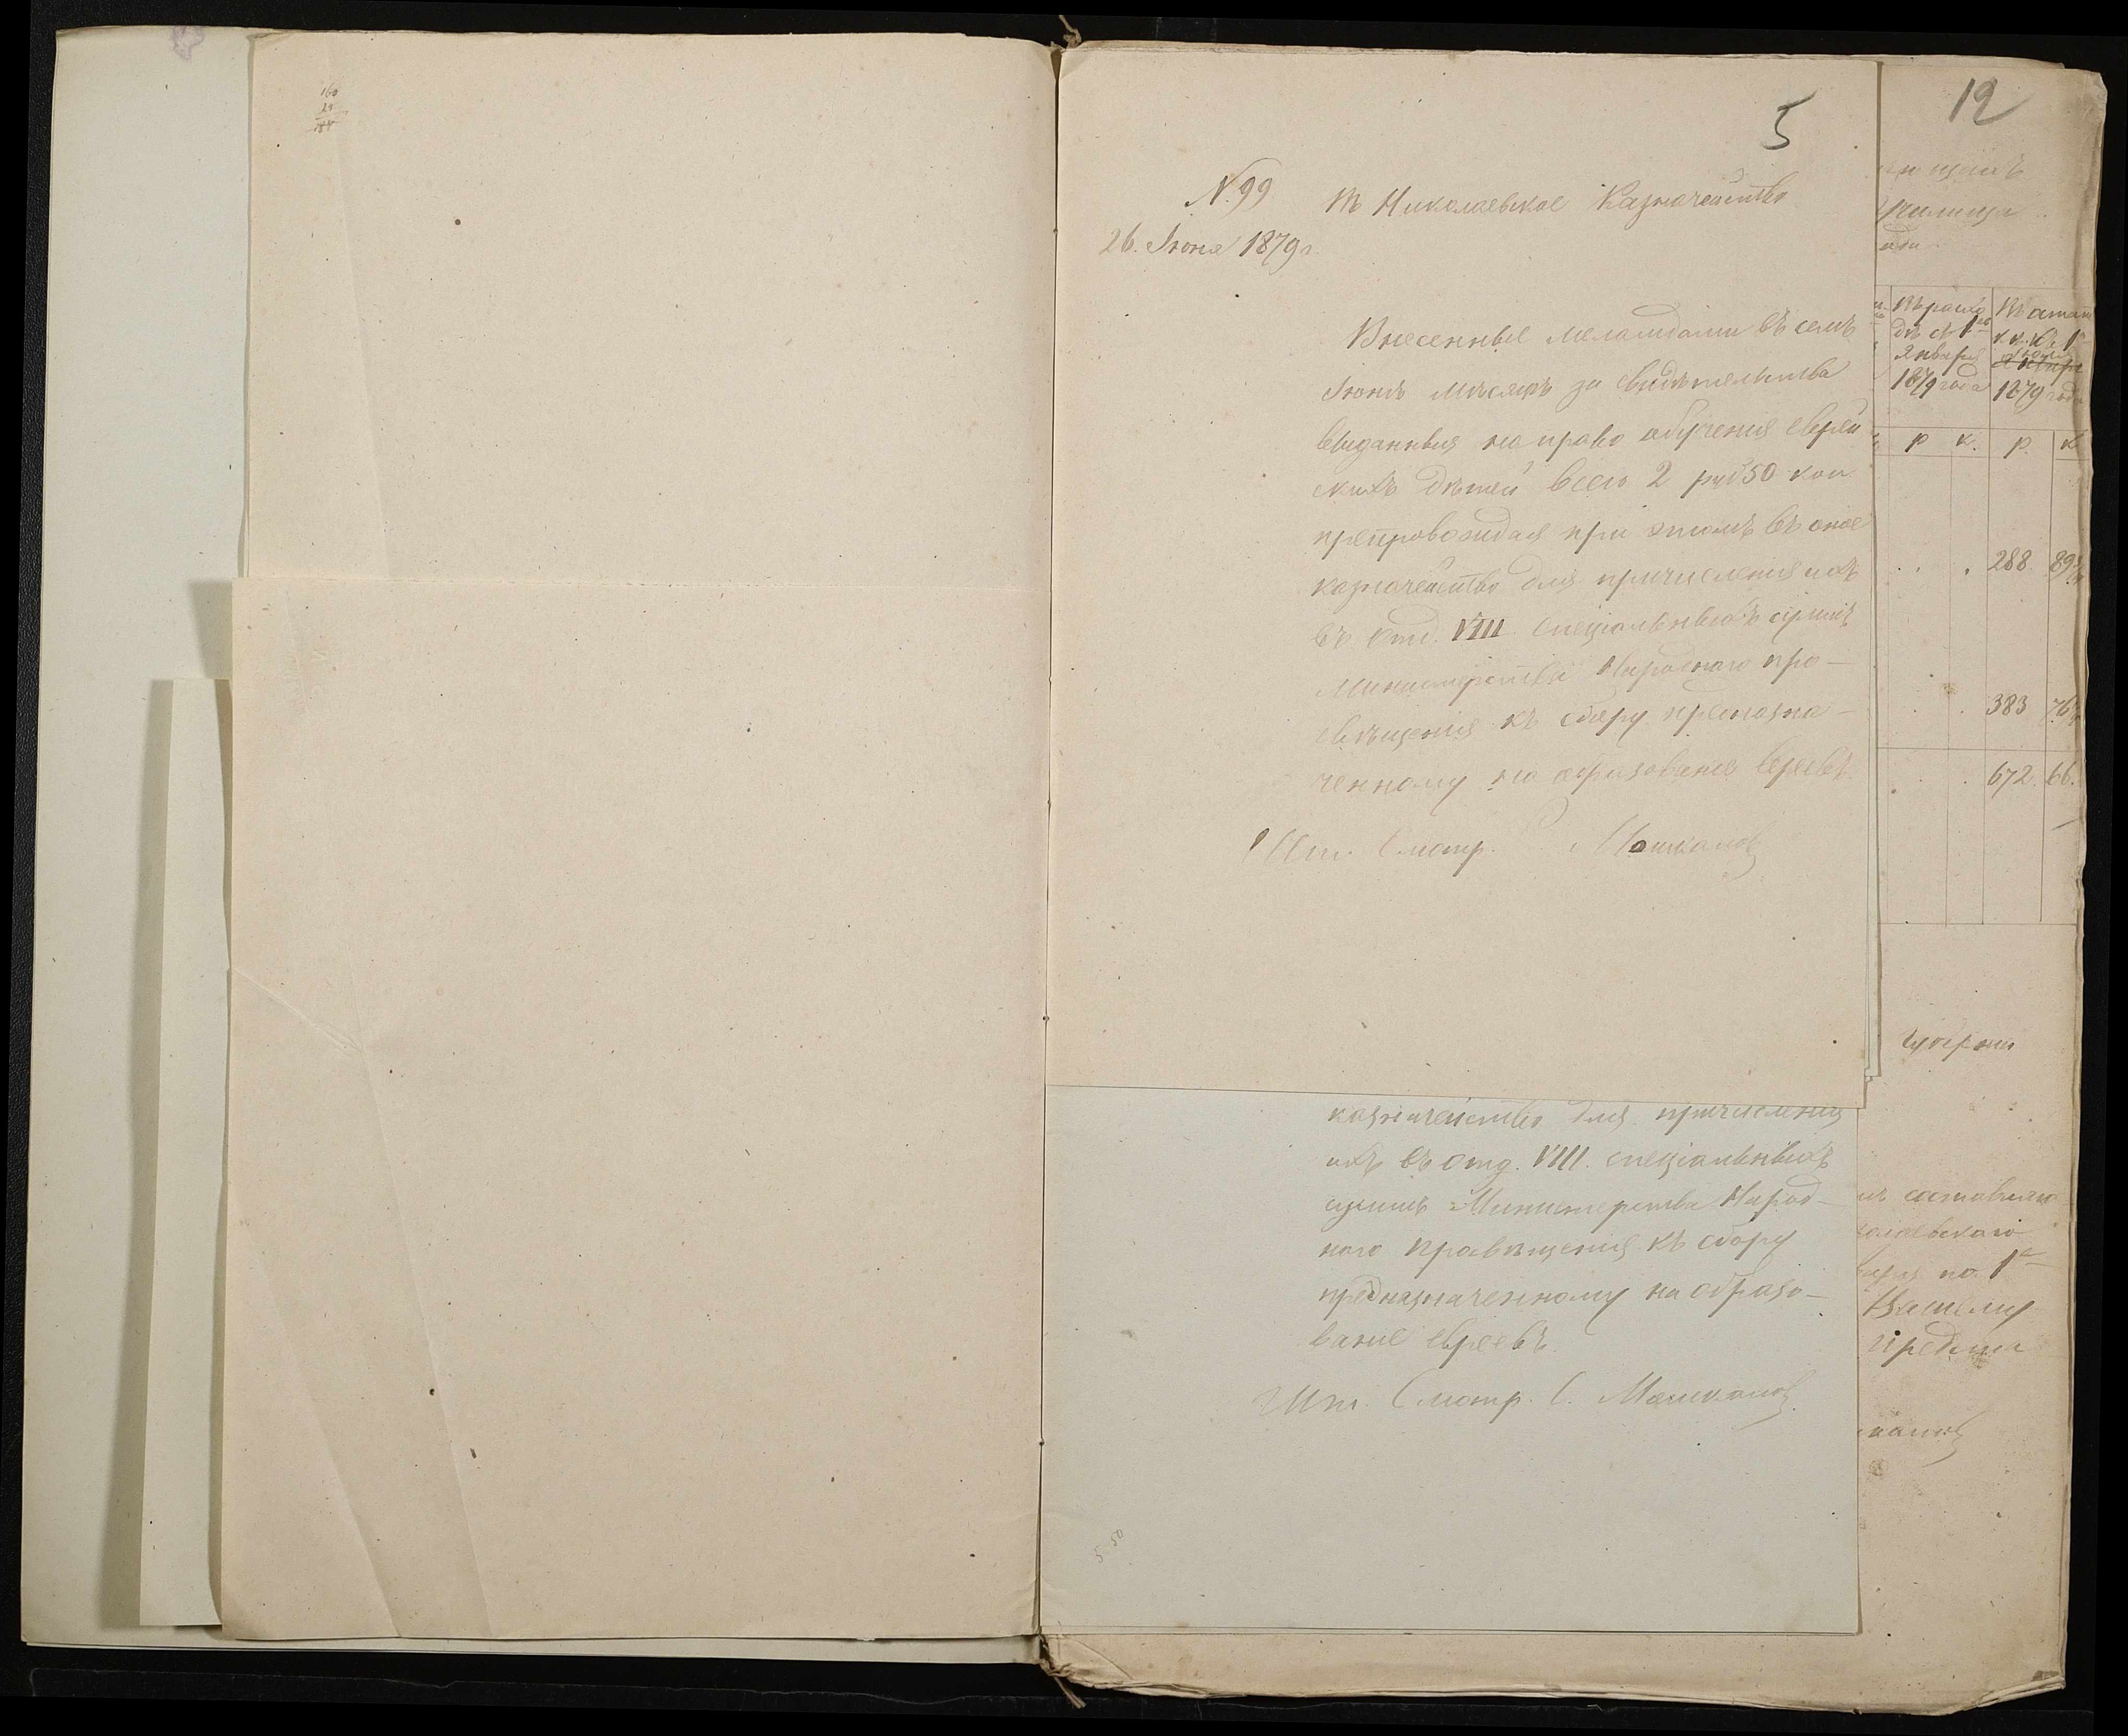 160
24
184
5
12
N. 99
Въ Николаевское Казначейство
26. Іюня 1879 г.
Внесенные меламдами въ семъ
Іюнѣ мѣсяцѣ за свидѣтельства
выданныя на право обученія еврей
скихъ дѣтей всего 2 руб 50 коп
препровождая при этомъ въ оное
казначейство для причисленія ихъ
въ Отд. VIII. спеціальныхъ суммъ
Министерства Народнаго про-
свѣщенія къ сбору предназна-
ченному на образованіе евреевъ.
Шт. Смотр. С. Машкалов
казначейство для причисленія
ихъ въ Отд. VIII. спеціальныхъ
суммъ Министерства Народ-
наго просвѣщенія къ сбору
предназначенному на образо-
ваніе евреевъ.
Шт. Смотр. С. Машкалов
5 50
училища
Въ расхо
дѣ съ 1го
Января
1879 года
Въ остат
къ 1е
1879 года
р к. р. к
288. 89
383 76
672. 66.
губерніи
составлен
колаевскаго
варя по 1е
Вашему
предст